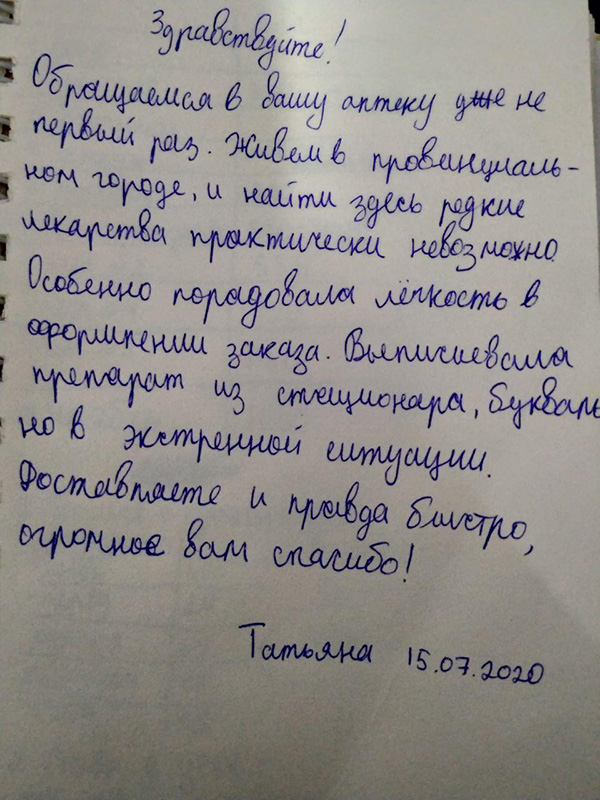 Здравствуйте!
Обращаемся в вашу аптеку уже не
первый раз. Живем в провинциаль-
ном городе, и найти здесь редкие
лекарства практически невозможно.
Особенно порадовала лёгкость в
оформлении заказа. Выписывала
препарат из стационара, букваль
но в экстренной ситуации.
Доставляете и правда быстро,
огромное вам спасибо!
Татьяна 15.07.2020